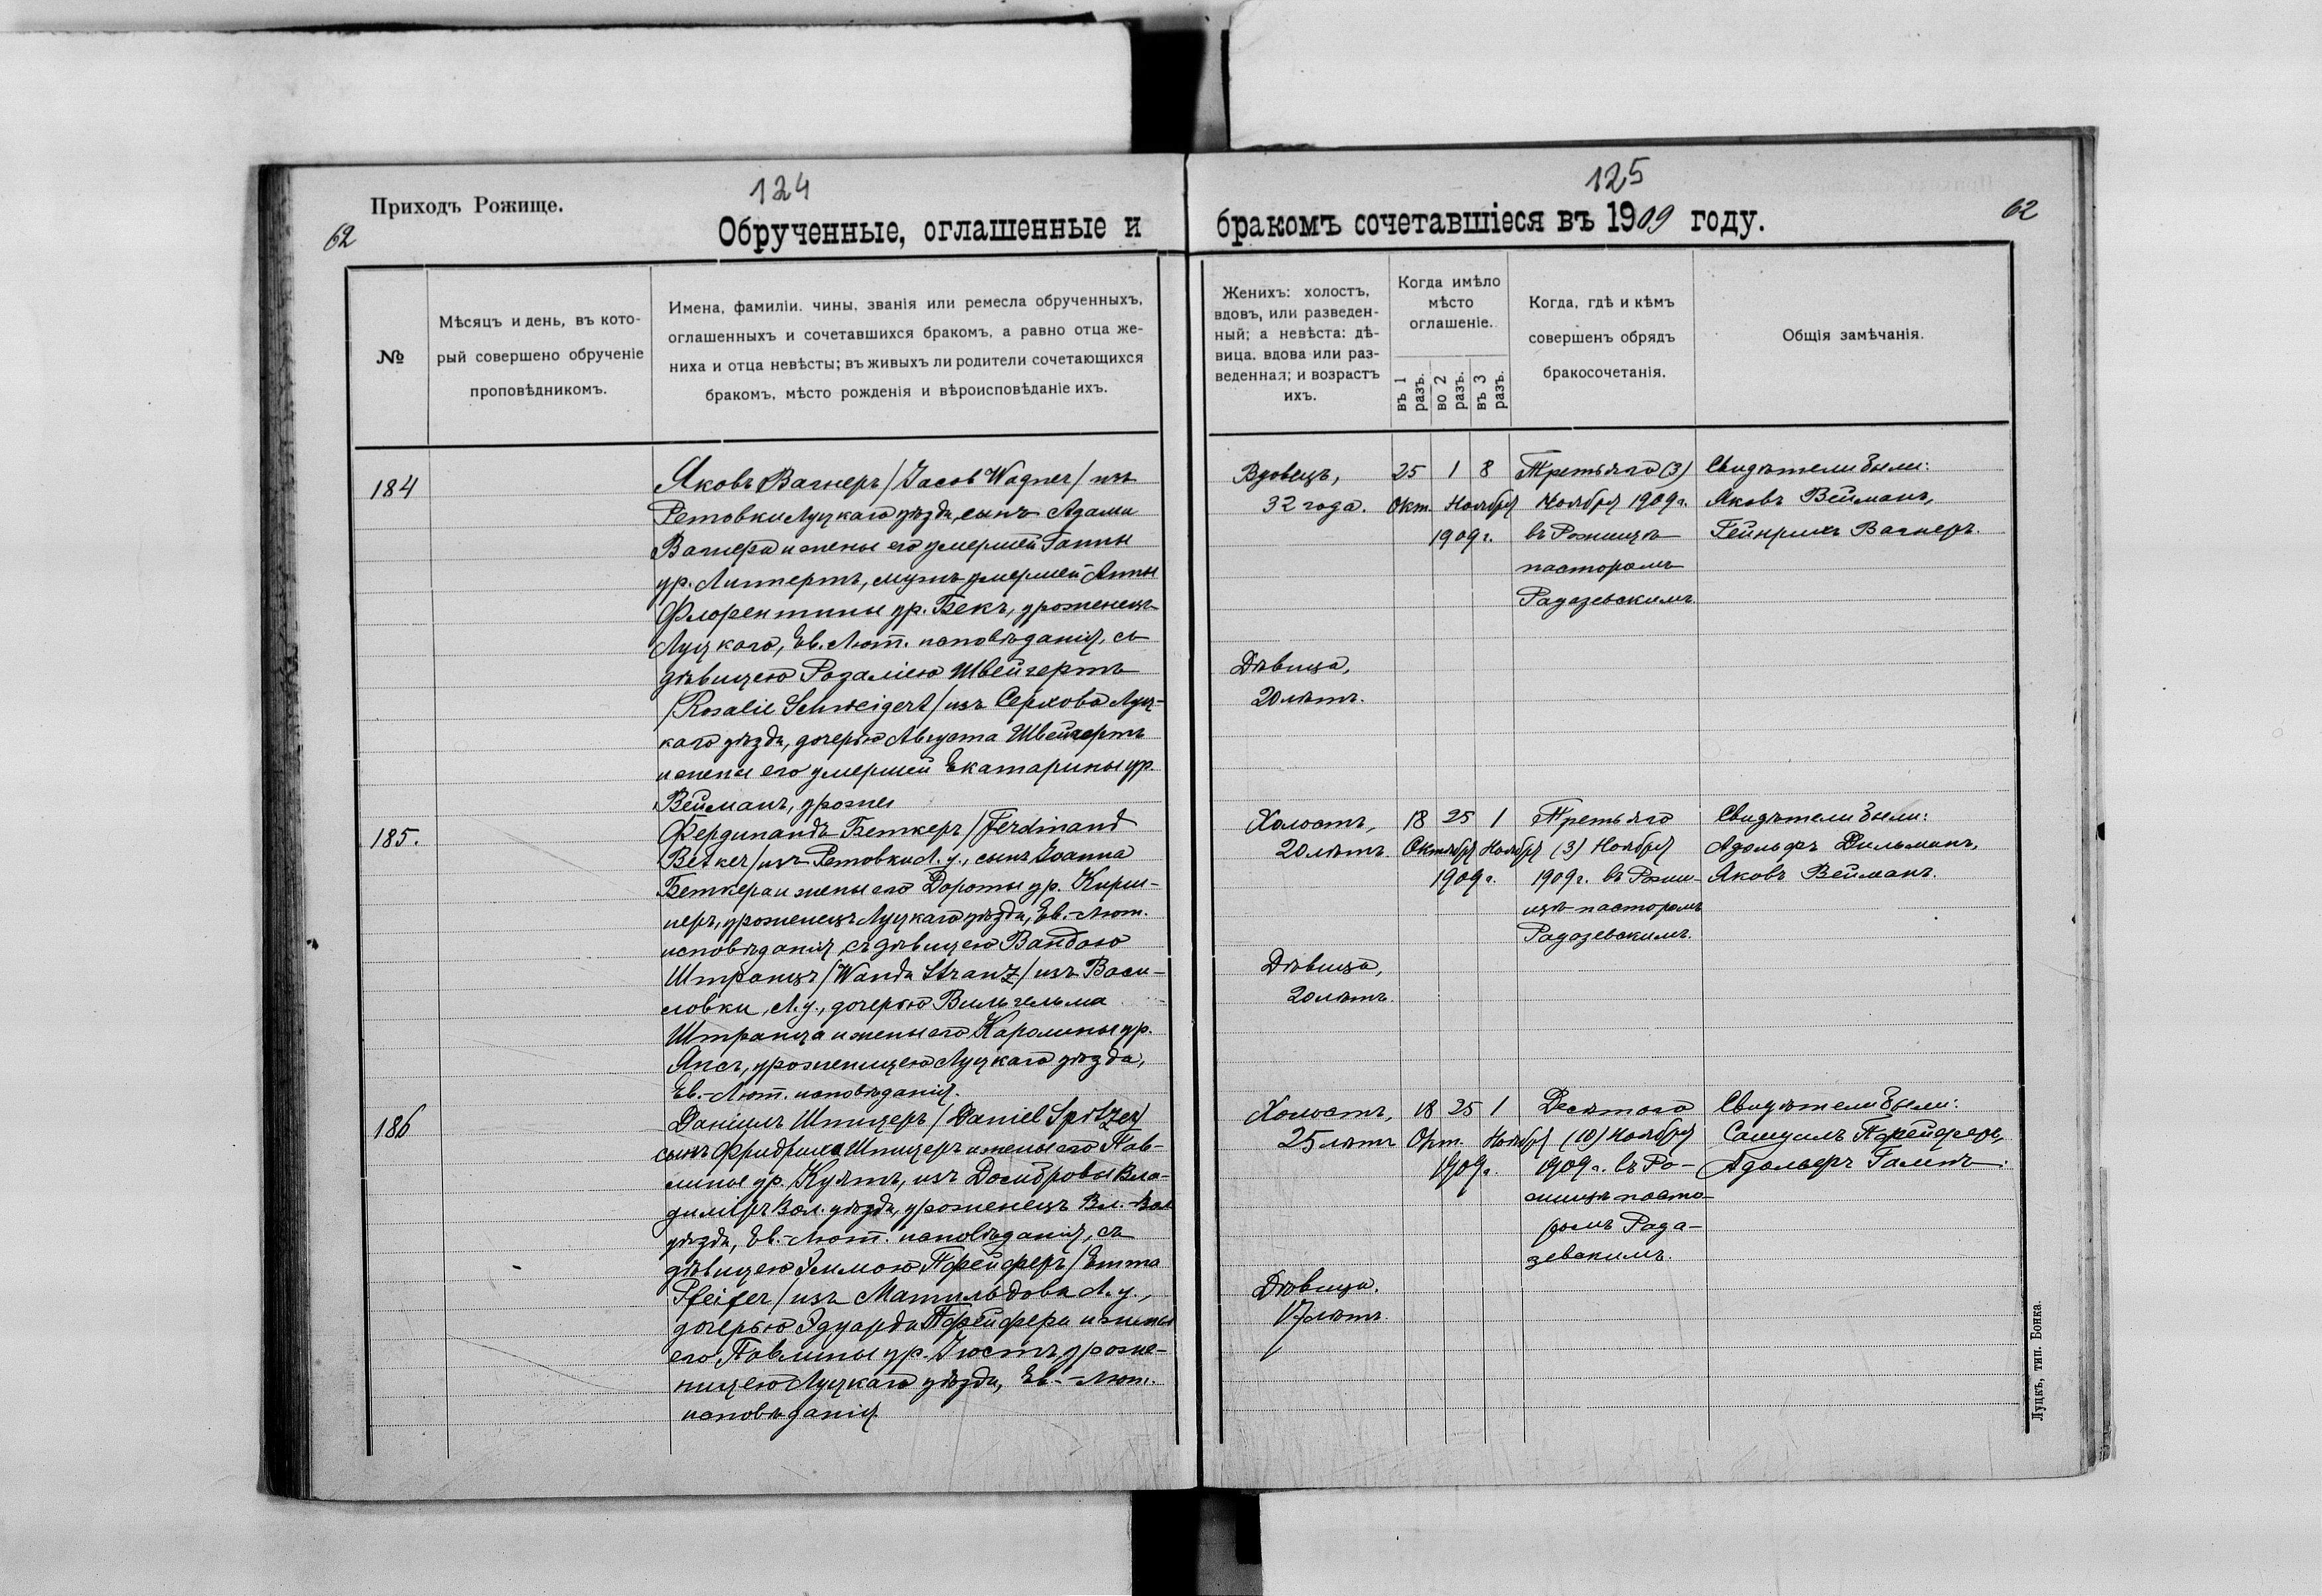 124
125
Приходъ Рожище.
62
62
Обрученные, оглашенные и
бракомъ сочетавшіеся въ 1909 году.
№
Мѣсяцъ и день, въ кото-
рый совершено обрученіе
проповѣдникомъ.
Имена, фамиліи. чины, званія или ремесла обрученныхъ,
оглашенныхъ и сочетавшихся бракомъ, а равно отца же-
ниха и отца невѣсты; въ живыхъ ли родители сочетающихся
бракомъ, мѣсто рожденія и вѣроисповѣданіе ихъ.
Женихъ: холостъ,
вдовъ, или разведен-
ный; а невѣста: дѣ-
вица. вдова или раз-
веденная; и возрастъ
ихъ.
Когда имѣло
мѣсто
оглашеніе.
въ 1 разъ.
во 2 разъ.
въ 3 разъ.
Когда, гдѣ и кѣмъ
совершенъ обрядъ
бракосочетанія.
Общія замѣчанія.
184
Яковъ Вагнеръ /Jacob Wagner/ изъ
Ретовки Луцкаго уѣзда, сынъ Адама
Вагнера и жены его умершей Ганны
ур. Липпертъ, мужъ умершей Анны
Флорентины ур. Бекъ, уроженецъ
Луцкаго, Ев. Лют. исповѣданія, съ
дѣвицею Розаліею Швейгертъ
/Rosalie Schweigert/ изъ Серхова Луц-
каго уѣзда, дочерью Августа Швейгертъ
и жены его умершей Екатарины ур.
Вейманъ, урожен
Вдовецъ,
32 года.
Дѣвица,
20 лѣтъ.
25 1 8
Окт. Ноября
1909 г.
Третьяго (3)
Ноября 1909 г.
въ Рожищѣ
пасторомъ
Радазевскимъ.
Свидѣтели были:
Яковъ Вейманъ,
Гейнрихъ Вагнеръ.
185.
Фердинандъ Беткеръ /Ferdinand
Betker/ изъ Ретовки Л. у., сынъ Іоанна
Беткера и жены его Дороты ур. Кирш-
неръ, уроженецъ Луцкаго уѣзда, Ев.-Лют.
исповѣданія, съ дѣвицею Вандою
Штранцъ /Wanda Stranz/ изъ Васи-
ловки, Л. у., дочерью Вильгельма
Штранца и жены его Каролины ур.
Янсъ, уроженицею Луцкаго уѣзда,
Ев.-Лют. исповѣданія.
Холостъ,
20 лѣтъ.
Дѣвица,
20 лѣтъ.
18 25 1
Октября Ноября
1909 г.
Третьяго
(3) Ноября
1909 г. въ Рожи-
щѣ пасторомъ
Радазевскимъ.
Свидѣтели были:
Адольфъ Дильманъ,
Яковъ Вейманъ.
186
Даніилъ Шпицеръ /Daniel Spitzer/
сынъ Фридриха Шпицеръ и жены его Пав-
лины ур. Куятъ, изъ Домбровы Вла-
диміръ Вол. уѣзда, уроженецъ Вл.-Вол
уѣзда, Ев.-Лют. исповѣданія, съ
дѣвицею Эммою Пфейферъ /Emma
Pfeifer/ изъ Матильдова Л. у.,
дочерью Эдуарда Пфейфера и жены
его Павлины ур. Юстъ, уроже-
ницею Луцкаго уѣзда, Ев.-Лют.
исповѣданія.
Холостъ,
25 лѣтъ
Дѣвица.
17 лѣтъ.
18 25 1
Окт. Ноября
1909 г.
Десятаго
(10) Ноября
1909 г. въ Ро-
жищѣ пасто-
ромъ Рада-
зевскимъ.
Свидѣтели были:
Самуилъ Пфейферъ,
Адольфъ
Луцкъ, тип. Бонка.